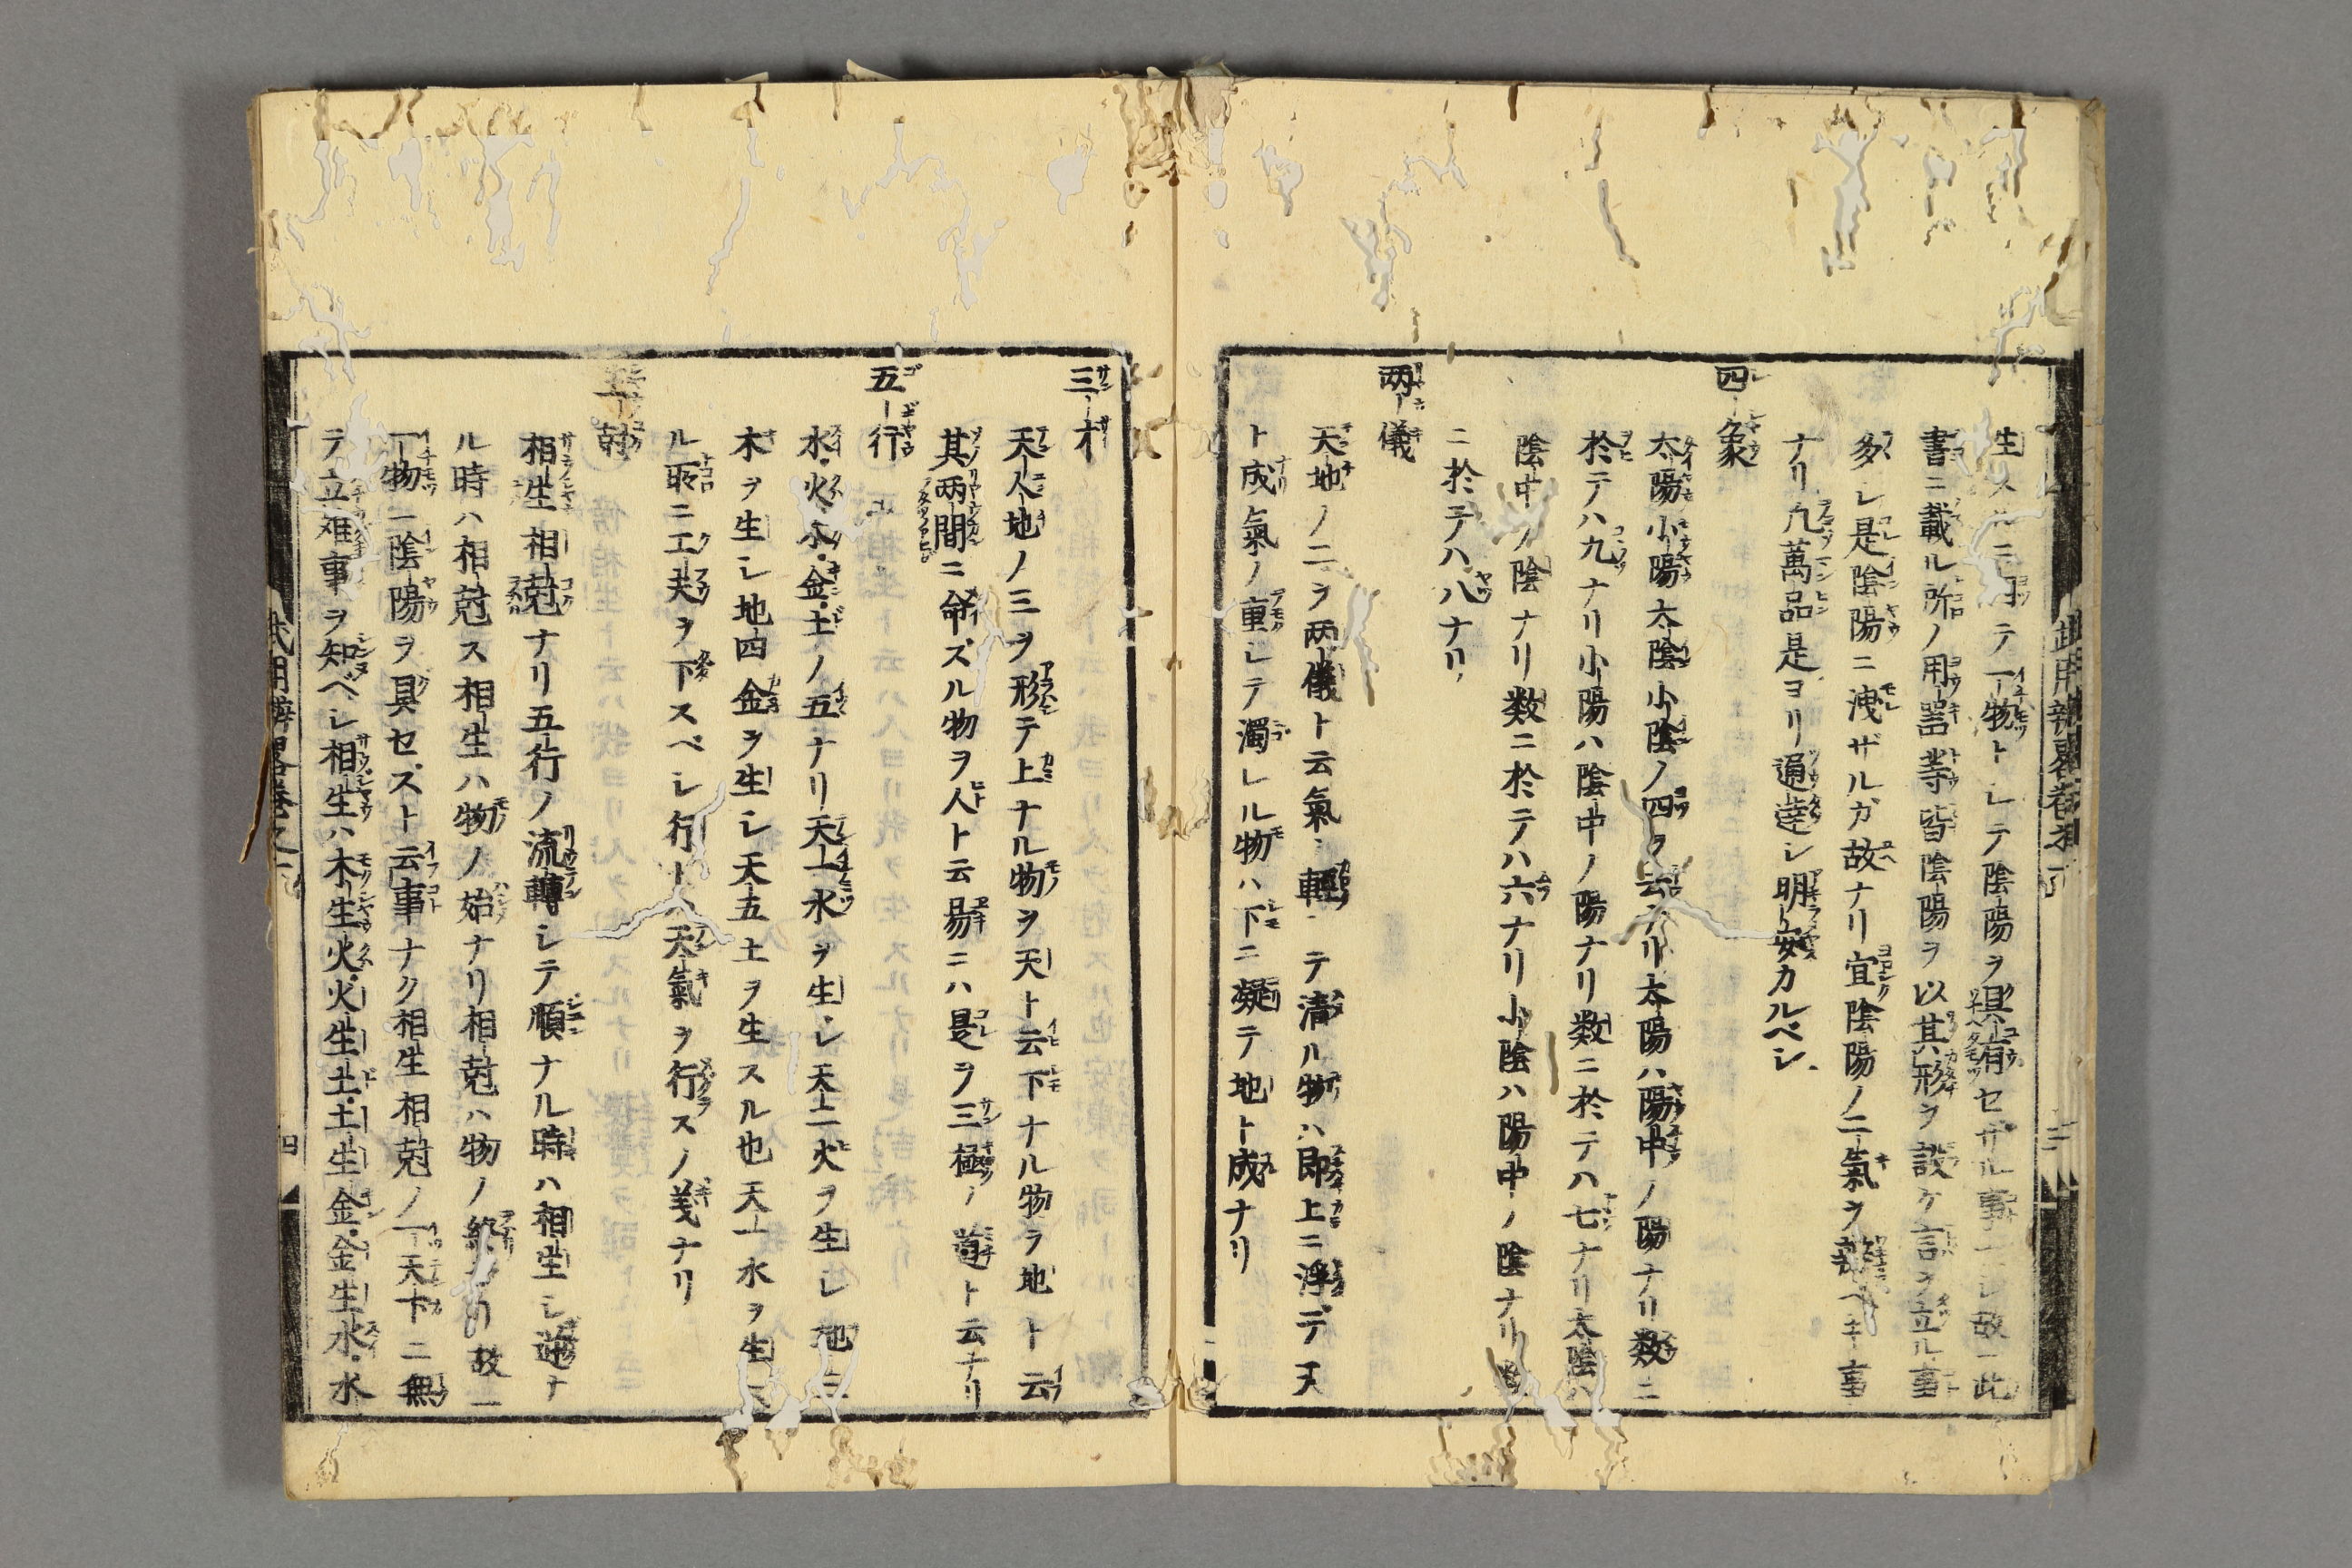 武用辨畧巻之一
三
生スルニ因テ一物トシテ陰陽ヲ具有セザル事ナシ故ニ此
書ニ載ル所ノ用器等皆陰陽ヲ以其形ヲ設ケ言ヲ立ル事
多シ是陰陽ニ洩ザルガ故ナリ宜陰陽ノ二氣ヲ辨ベキ事
ナリ凡萬品是ヨリ通達シ明安カルベシ
四象
太陽小陽太陰小陰ノ四ヲ云ナリ太陽ハ陽中ノ陽ナリ数ニ
於テハ九ナリ小陽ハ陰中ノ陽ナリ数ニ於テハ七ナリ太陰ハ
陰中ノ陰ナリ数ニ於テハ六ナリ小陰ハ陽中ノ陰ナリ数
ニ於テハ八ナリ
两儀
天地ノ二ヲ两儀ト云氣軽テ清ル物ハ即上ニ浮デ天
ト成氣ノ重シテ濁レル物ハ下ニ凝テ地ト成ナリ
三才
天人地ノ三ヲ形テ上ナル物ヲ天ト云下ナル物ヲ地ト云
其两間ニ命ズル物ヲ人ト云易ニハ是ヲ三極ノ道ト云ナリ
五行
水火木金土ノ五ナリ天一水ヲ生シ天二火ヲ生シ地三
木ヲ生シ地四金ヲ生シ天五土ヲ生スル也天一水ヲ生
ル所ニ工夫ヲ下スベシ行トハ天氣ヲ行スノ義ナリ
生尅
相生相尅ナリ五行ノ流轉シテ順ナル時ハ相生シ逆ナ
ル時ハ相尅ス相生ハ物ノ始ナリ相尅ハ物ノ終ナリ故ニ
一物ニ陰陽ヲ具セズト云事ナク相生相尅ノ一天下ニ無
テ立難事ヲ知ベシ相生ハ木生火火生土土生金金生水水
武用辨畧巻之一
四